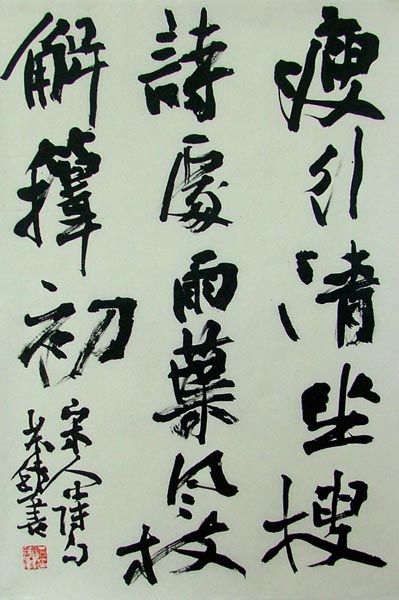 瘦行清坐搜
詩處雨葉風枝
解籜初
宋人詩句